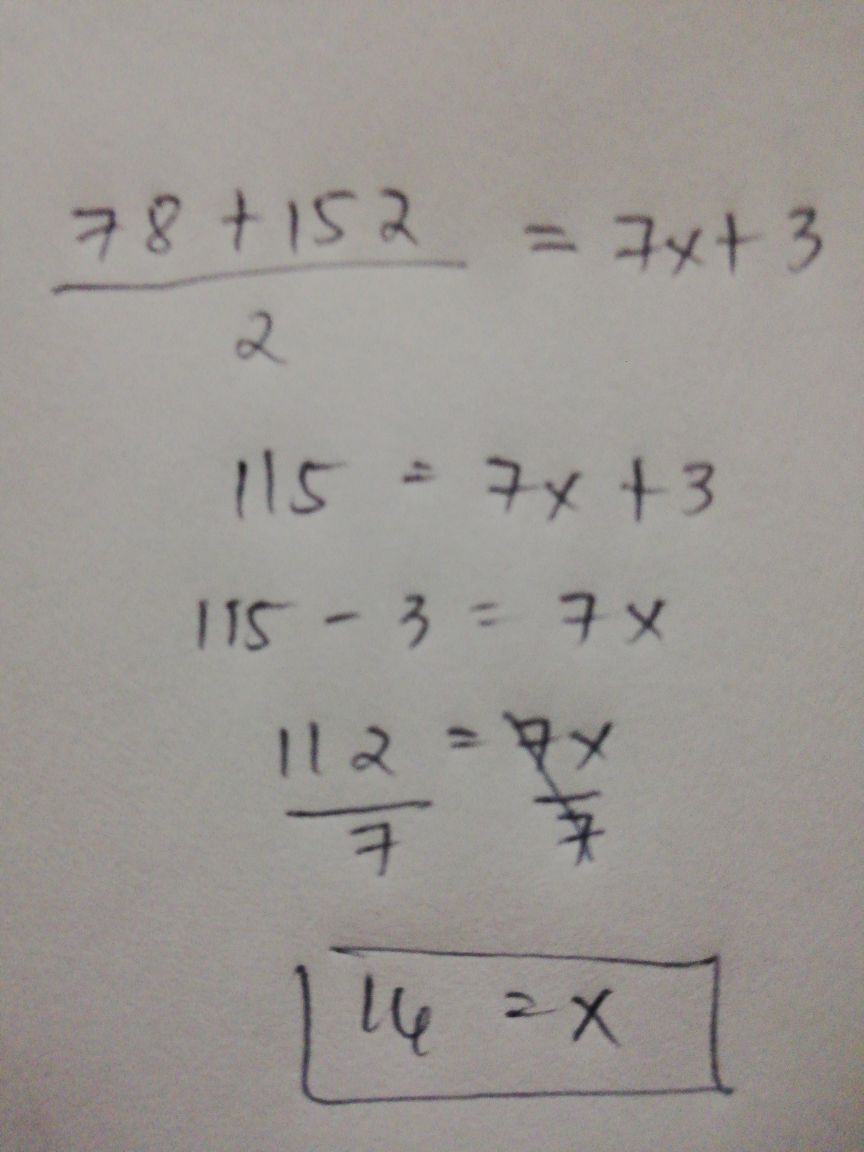 78 + 152 = 7x + 3
2
115 = 7x + 3
115 - 3 = 7x
112 = 7x
7 7
16 = x